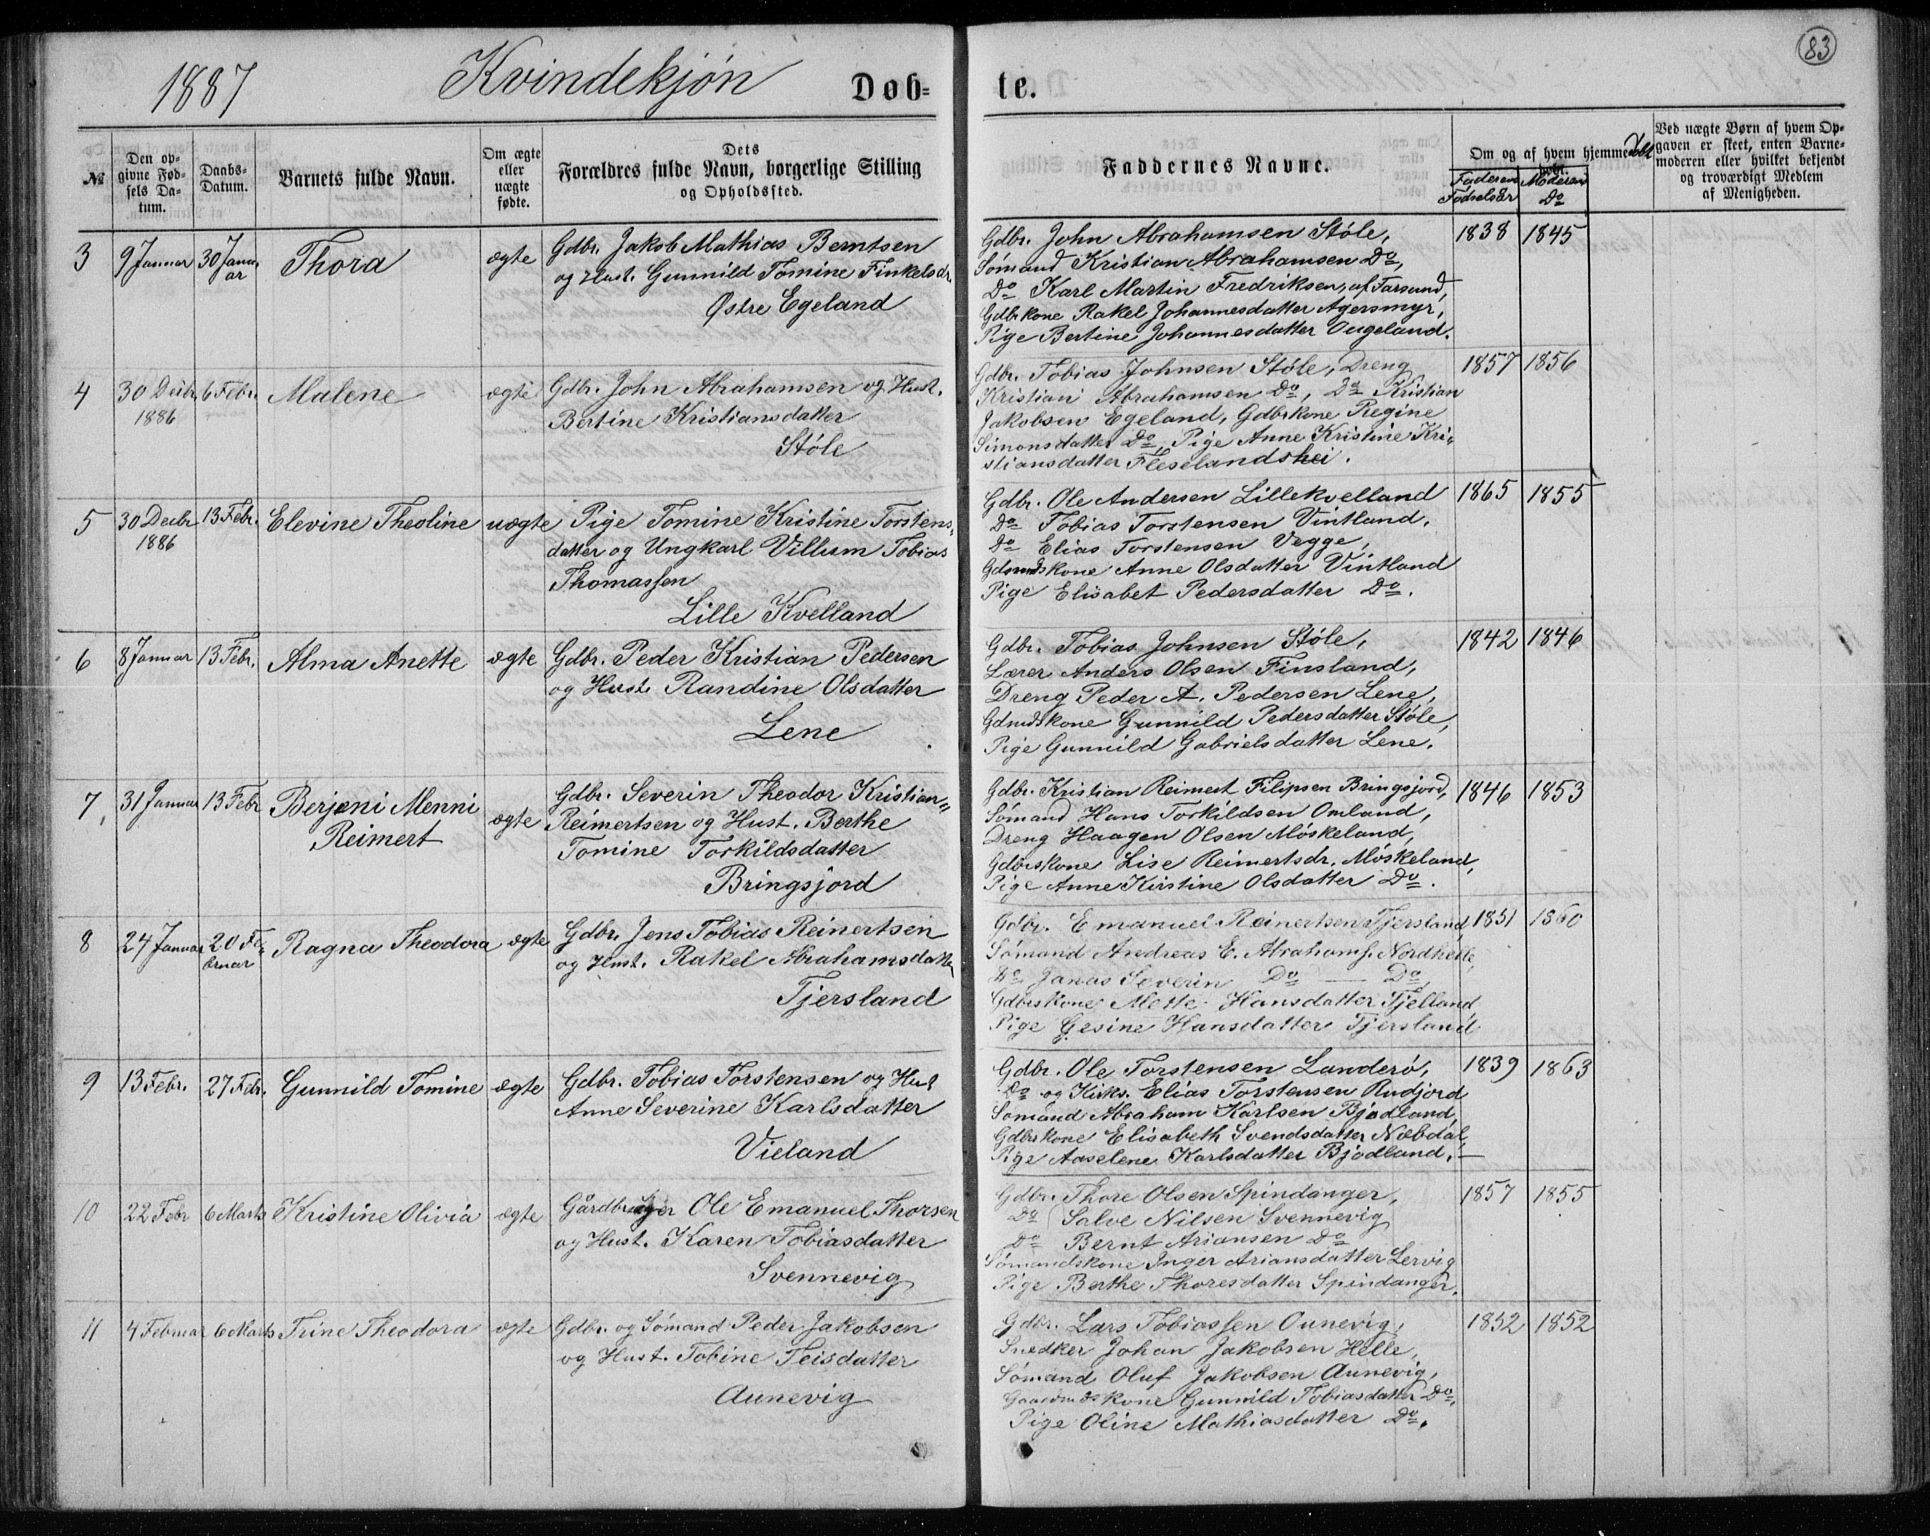 83
1887 Kvindekjøn Døb= te.
№
Den op-
givne Fød-
sels Da-
tum.
Daabs-
Datum.
Barnets fulde Navn.
Om ægte
eller
uægte
fødte.
Dets
Forældres fulde Navn, borgerlige Stilling
og Opholdssted.
Faddernes Navne.
Om og af hvem hjemmedøbt
Faderens
Fødselsår
Moderens
Do
Ved uægte Børn af hvem Op-
gaven er skeet, enten Barne-
moderen eller hvilket bekjendt
og troværdigt Medlem
af Menigheden.
3
9 Januar
30 Janu-
ar
Thora
ægte
Gdbr. Jakob Mathias Berntsen
og Hust. Gunnild Tomine Finkelsdr.
Østre Egeland
Gdbr. John Abrahamsen Støle,
Sømand Kristian Abrahamsen Do,
Do Karl Martin Fredriksen, af Farsund,
Gdbrkone Rakel Johannesdatter Agersmyr,
Pige Bertine Johannesdatter Ougeland.
1838 1845
4
30 Decbr
1886
6 Febr.
Malene
ægte
Gdbr. John Abrahamsen og Hust.
Bertine Kristiansdatter
Støle
Gdbr. Tobias Johnsen Støle, Dreng
Kristian Abrahamsen Do, Do Kristian
Jakobsen Egeland, Gdbrkone Regine
Simonsdatter Do, Pige Anne Kristine Kri-
stiansdatter Fleselandshei.
1857 1856
5
30 Decbr
1886
13 Febr.
Elevine Theoline
uægte
Pige Tomine Kristine Torstens-
datter og Ungkarl Villum Tobias
Thomassen
Lille Kvelland
Gdbr. Ole Andersen Lillekvelland
Do Tobias Torstensen Vintland,
Do Elias Torstensen Vegge,
Gdmdskone Anne Olsdatter Vintland
Pige Elisabet Pedersdatter Do.
1865 1855
6
8 Januar
13 Febr.
Alma Anette
ægte
Gdbr. Peder Kristian Pedersen
og Hust. Randine Olsdatter
Lene
Gdbr. Tobias Johnsen Støle,
Lærer Anders Olsen Finsland,
Dreng Peder A. Pedersen Lene,
Gdmdskone Gunnild Pedersdatter Støle,
Pige Gunnild Gabrielsdatter Lene.
1842 1846
7,
31 Januar
13 Febr
Berjeni Menni
Reimert
ægte
Gdbr. Severin Theodor Kristian
Reimertsen og Hust. Berthe
Tomine Torkildsdatter
Bringsjord
Gdbr. Kristian Reimert Filipsen Bringsjord,
Sømand Hans Torkildsen Omland,
Dreng Haagen Olsen Møskeland,
Gdbrskone Lise Reimertsdr. Møskeland,
Pige Anne Kirstine Olsdatter Do.
1846 1853
8
24 Januar
20 Fe-
bruar
Ragna Theodora
ægte
Gdbr. Jens Tobias Reinertsen
og Hust. Rakel Abrahamsdatter
Tjersland
Gdbr. Emanuel Reinertsen Tjersland,
Sømand Andreas E. Abrahams. Nordhelle,
Do Janas Severin Do — Do
Gdbrskone Mette Hansdatter Tjelland
Pige Gesine Hansdatter Tjersland
1851 1860
9
13 Febr.
27 Febr.
Gunnild Tomine
ægte
Gdbr. Tobias Torstensen og Hust
Anne Severine Karlsdatter
Vieland
Gdbr. Ole Torstensen Landerø,
Do og Kirks. Elias Torstensen Rudjord
Sømand Abraham Karlsen Bjødland,
Gdbrskone Elisabeth Svendsdatter Næbdal,
Pige Aaselene Karlsdatter Bjødland.
1839 1863
10
22 Febr
6 Marts
Kristine Olivia
ægte
Gårdbruger Ole Emanuel Thorsen
og Hust. Karen Tobiasdatter
Svennevig
Gdbr. Thore Olsen Spindanger,
Do Salve Nilsen Svennevig
Do Bernt Ariansen Do
Sømandskone Inger Ariansdatter Lervig
Pige Berthe Thoresdatter Spindanger.
1857 1855
11
4 Februar
6 Marts
Trine Theodora
ægte
Gdbr. og Sømand Peder Jakobsen
og Hust. Tobine Teisdatter
Aunevig
Gdbr. Lars Tobiassen Aunevig,
Snedker Johan Jakobsen Helle,
Sømand Oluf Jakobsen Aunevig,
Gaardmdskone Gunnild Tobiasdatter Do,
Pige Oline Mathiasdatter Do.
1852 1852